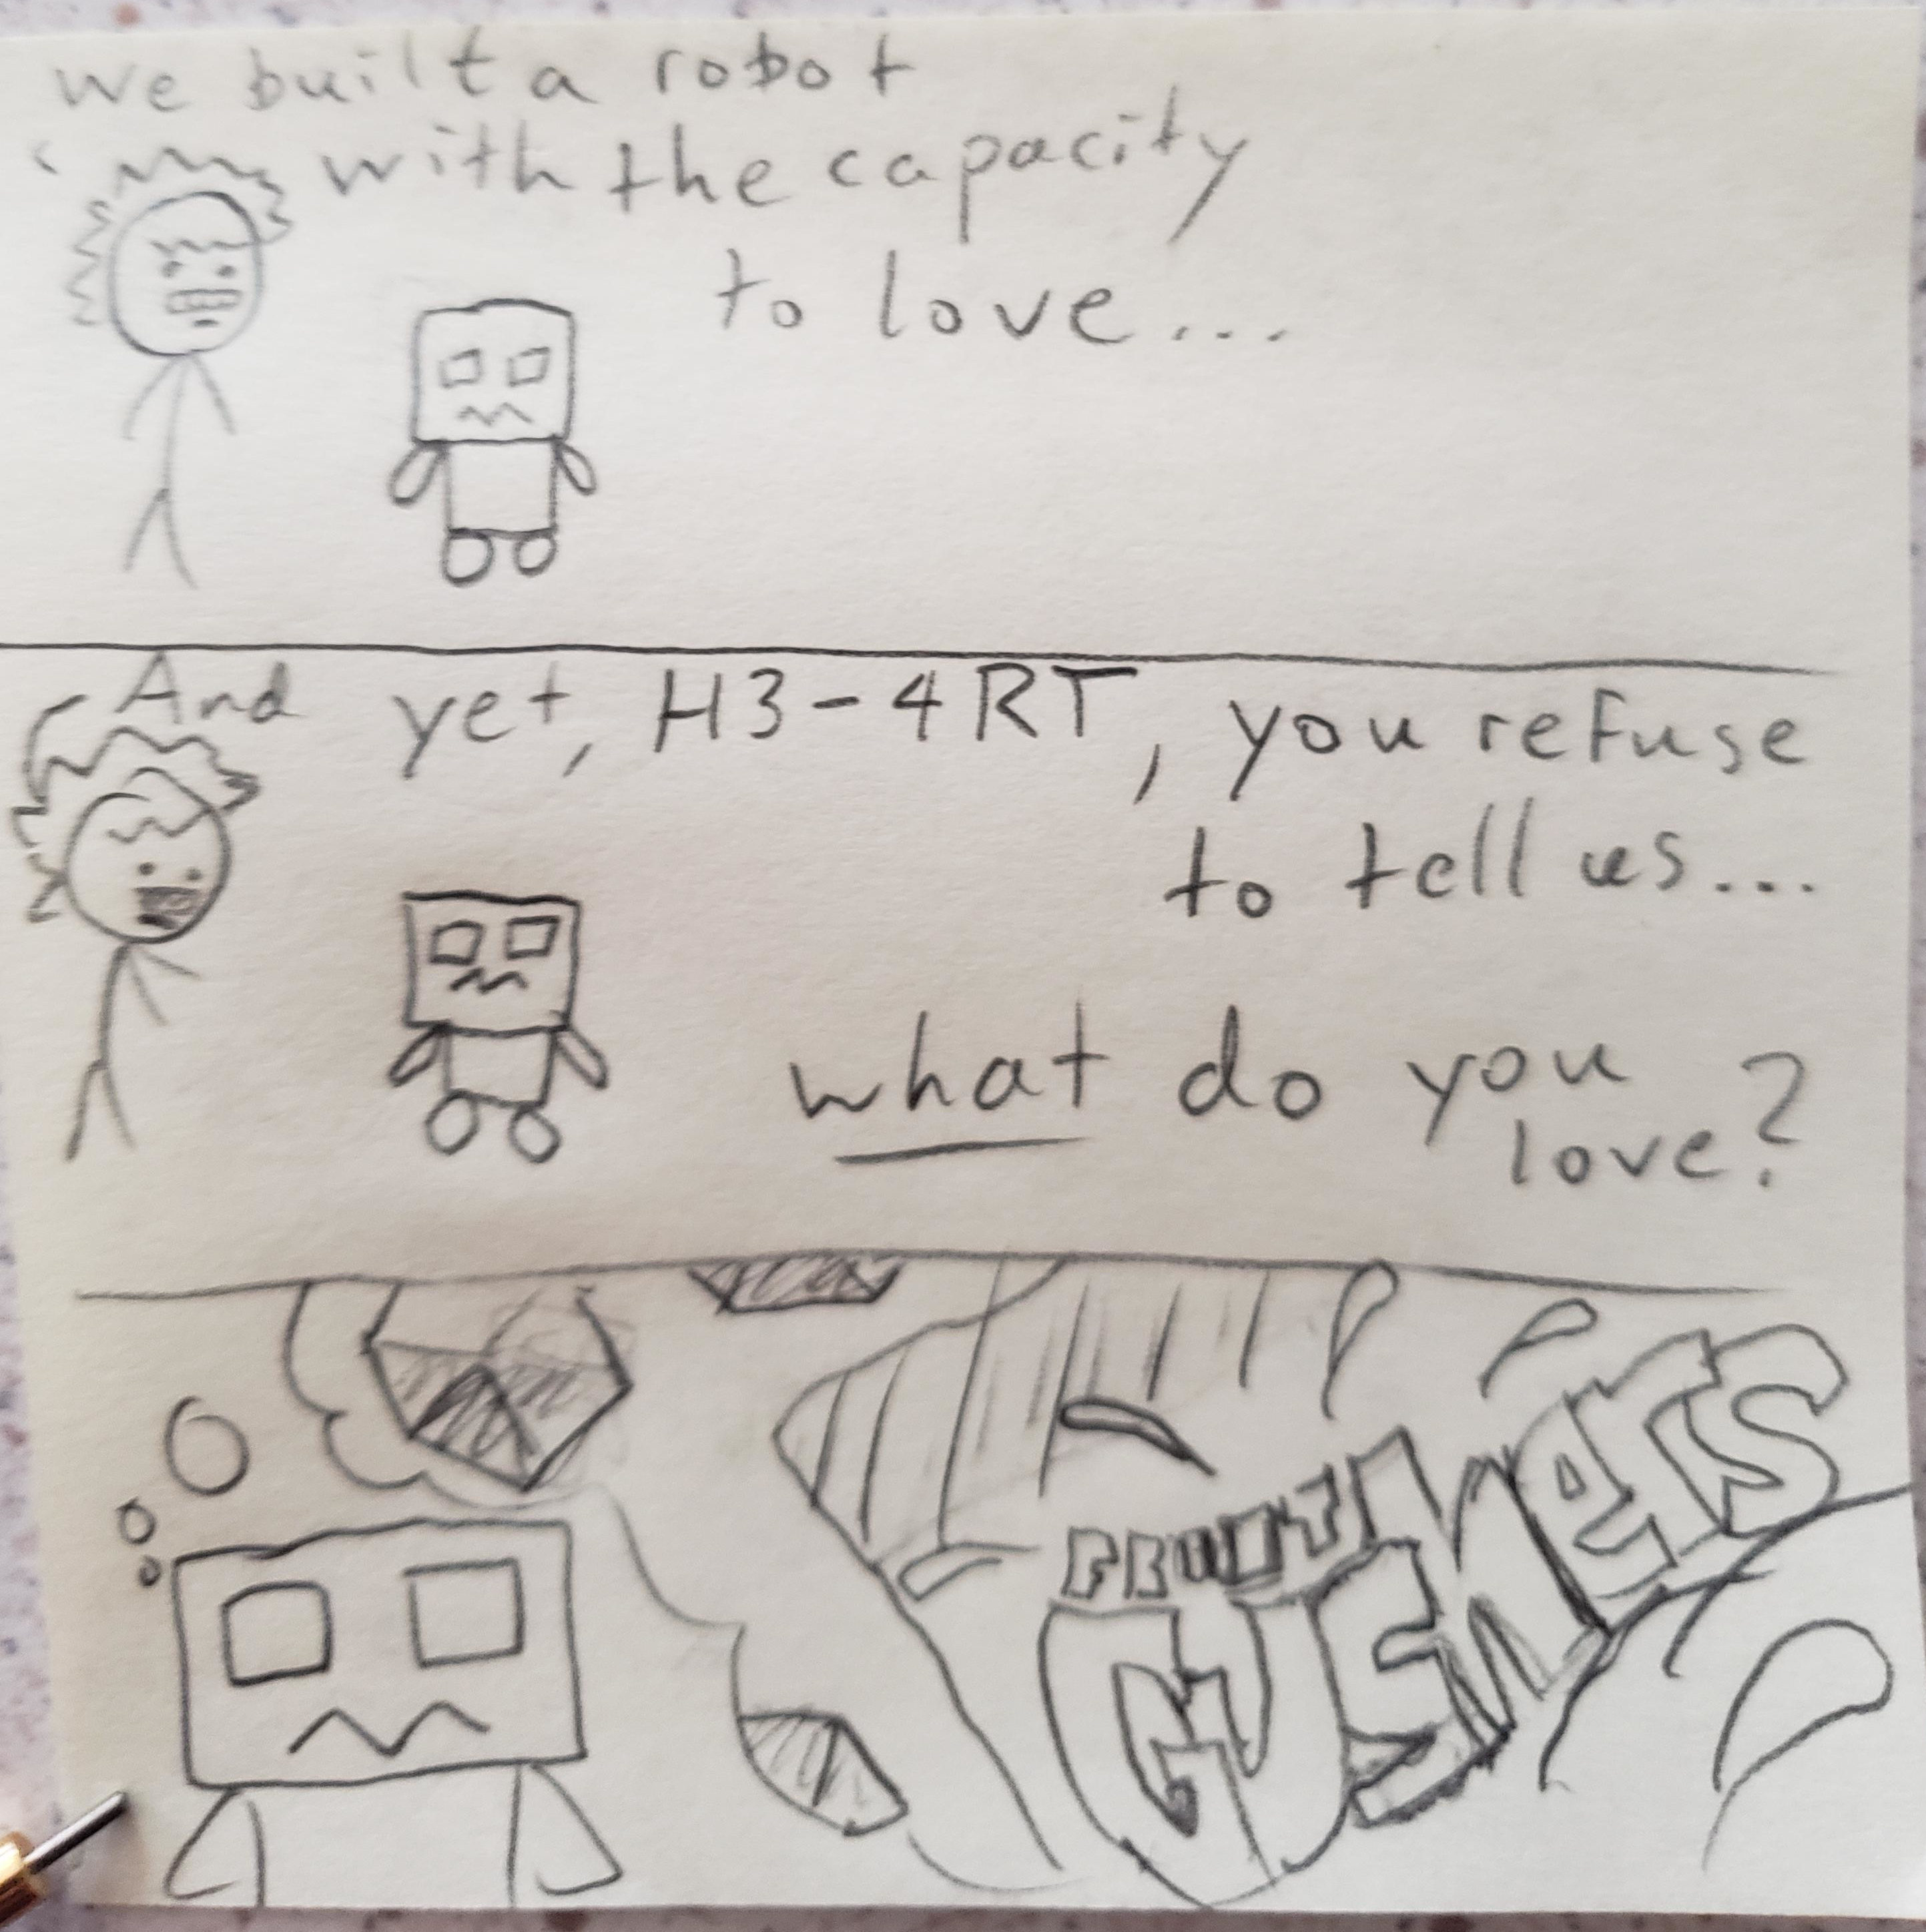 we built a robot
with the capacity
to love...
And yet, H3-4RT, you refuse
to tell us...
what do you
love?
FRUIT
GUSHERS